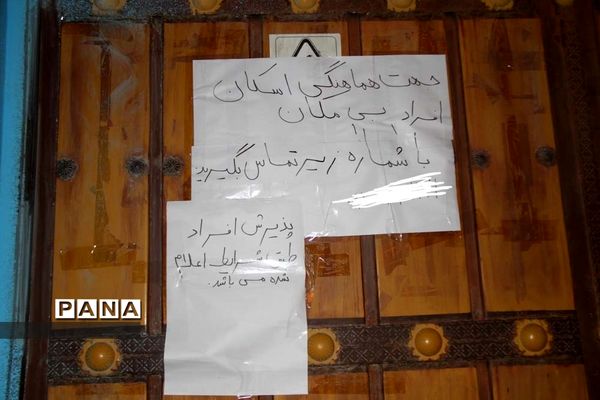 جهت هماهنگی اسکان
افراد بی مکان
با شماره زیر تماس بگیرید:
پذیرش افراد
طبق شرایط اعلام
شده می باشد.
PANA